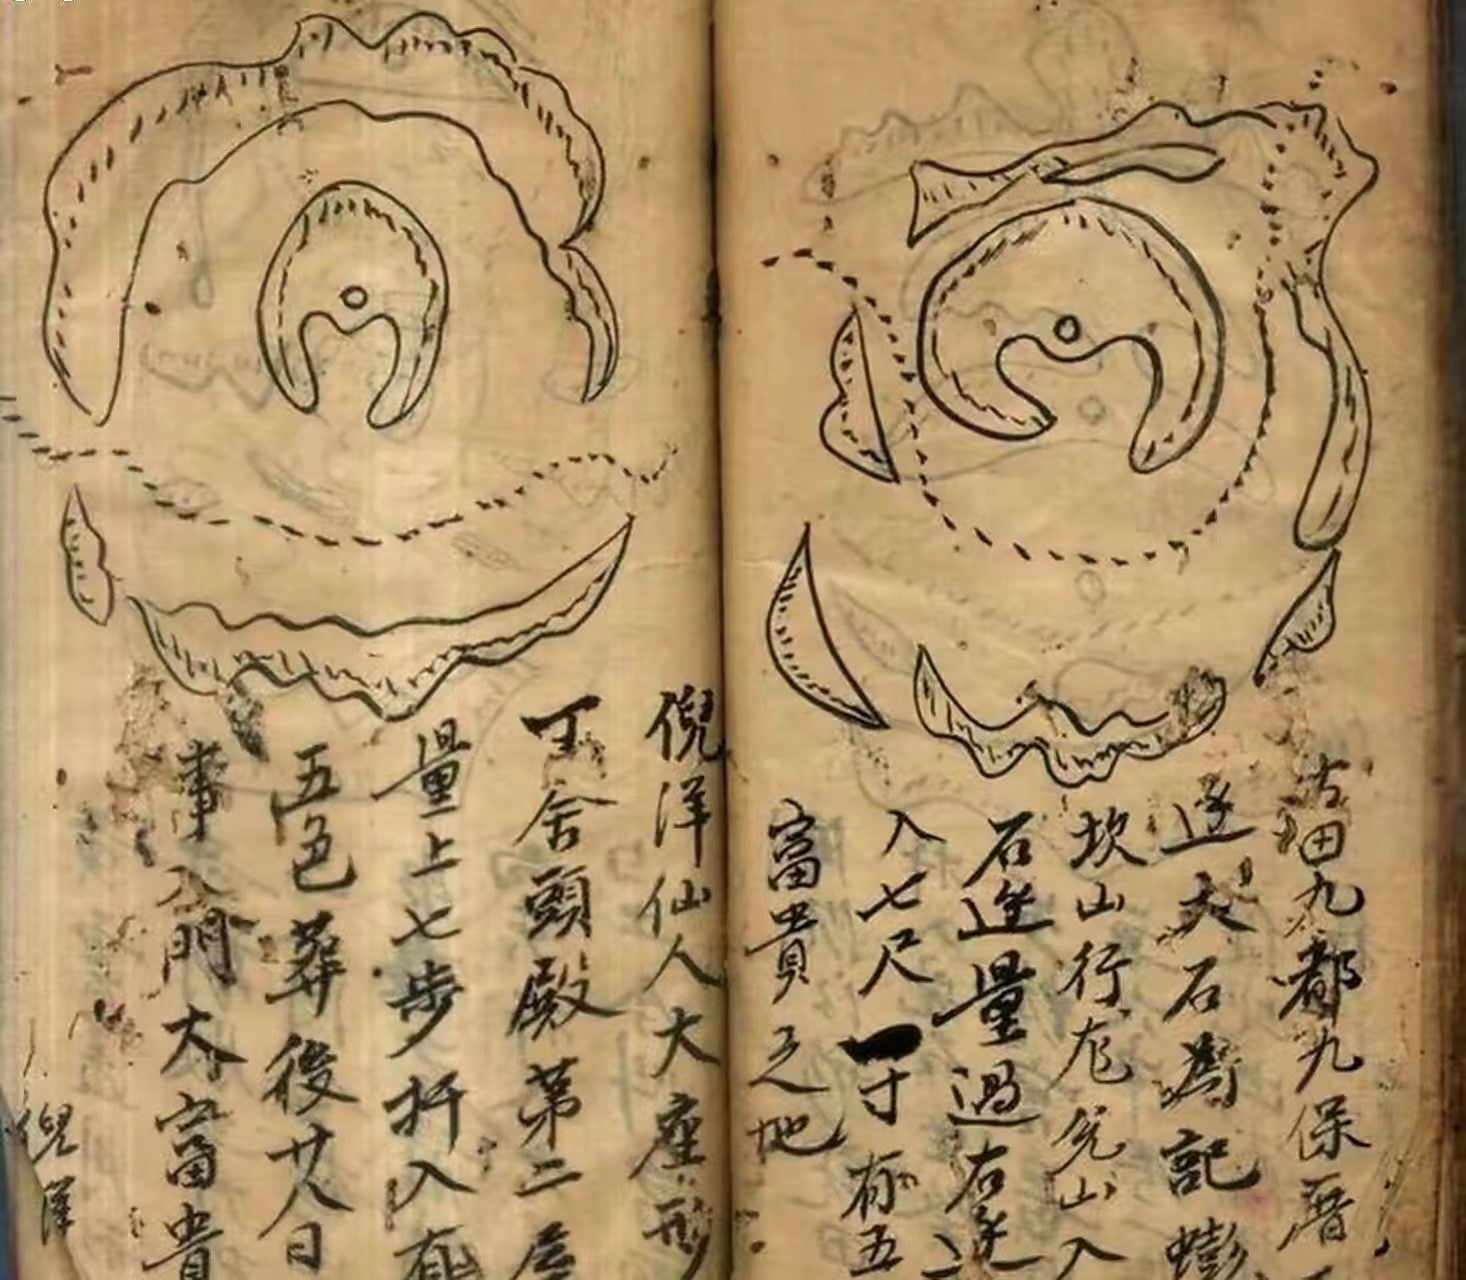 古田九都九保厝
逐大石為記蟛
坎山行龙兑山入
石逆量過右逆
入七尺一寸有五
富貴之地
倪洋仙人大座形
丁舍頭殿第二
量上七步折入有
五色葬後廿八日
事入門大富貴
倪洋